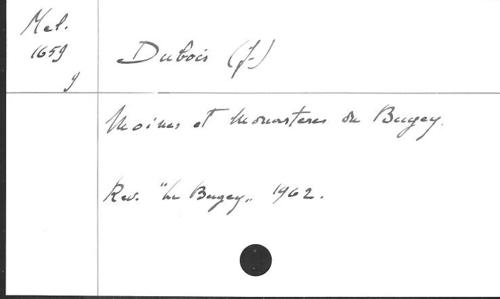 Mel.
1659
9
Dubois (J.)
Moines et Monasteres du Bugey.
Rev. "Le Bugey" 1962.